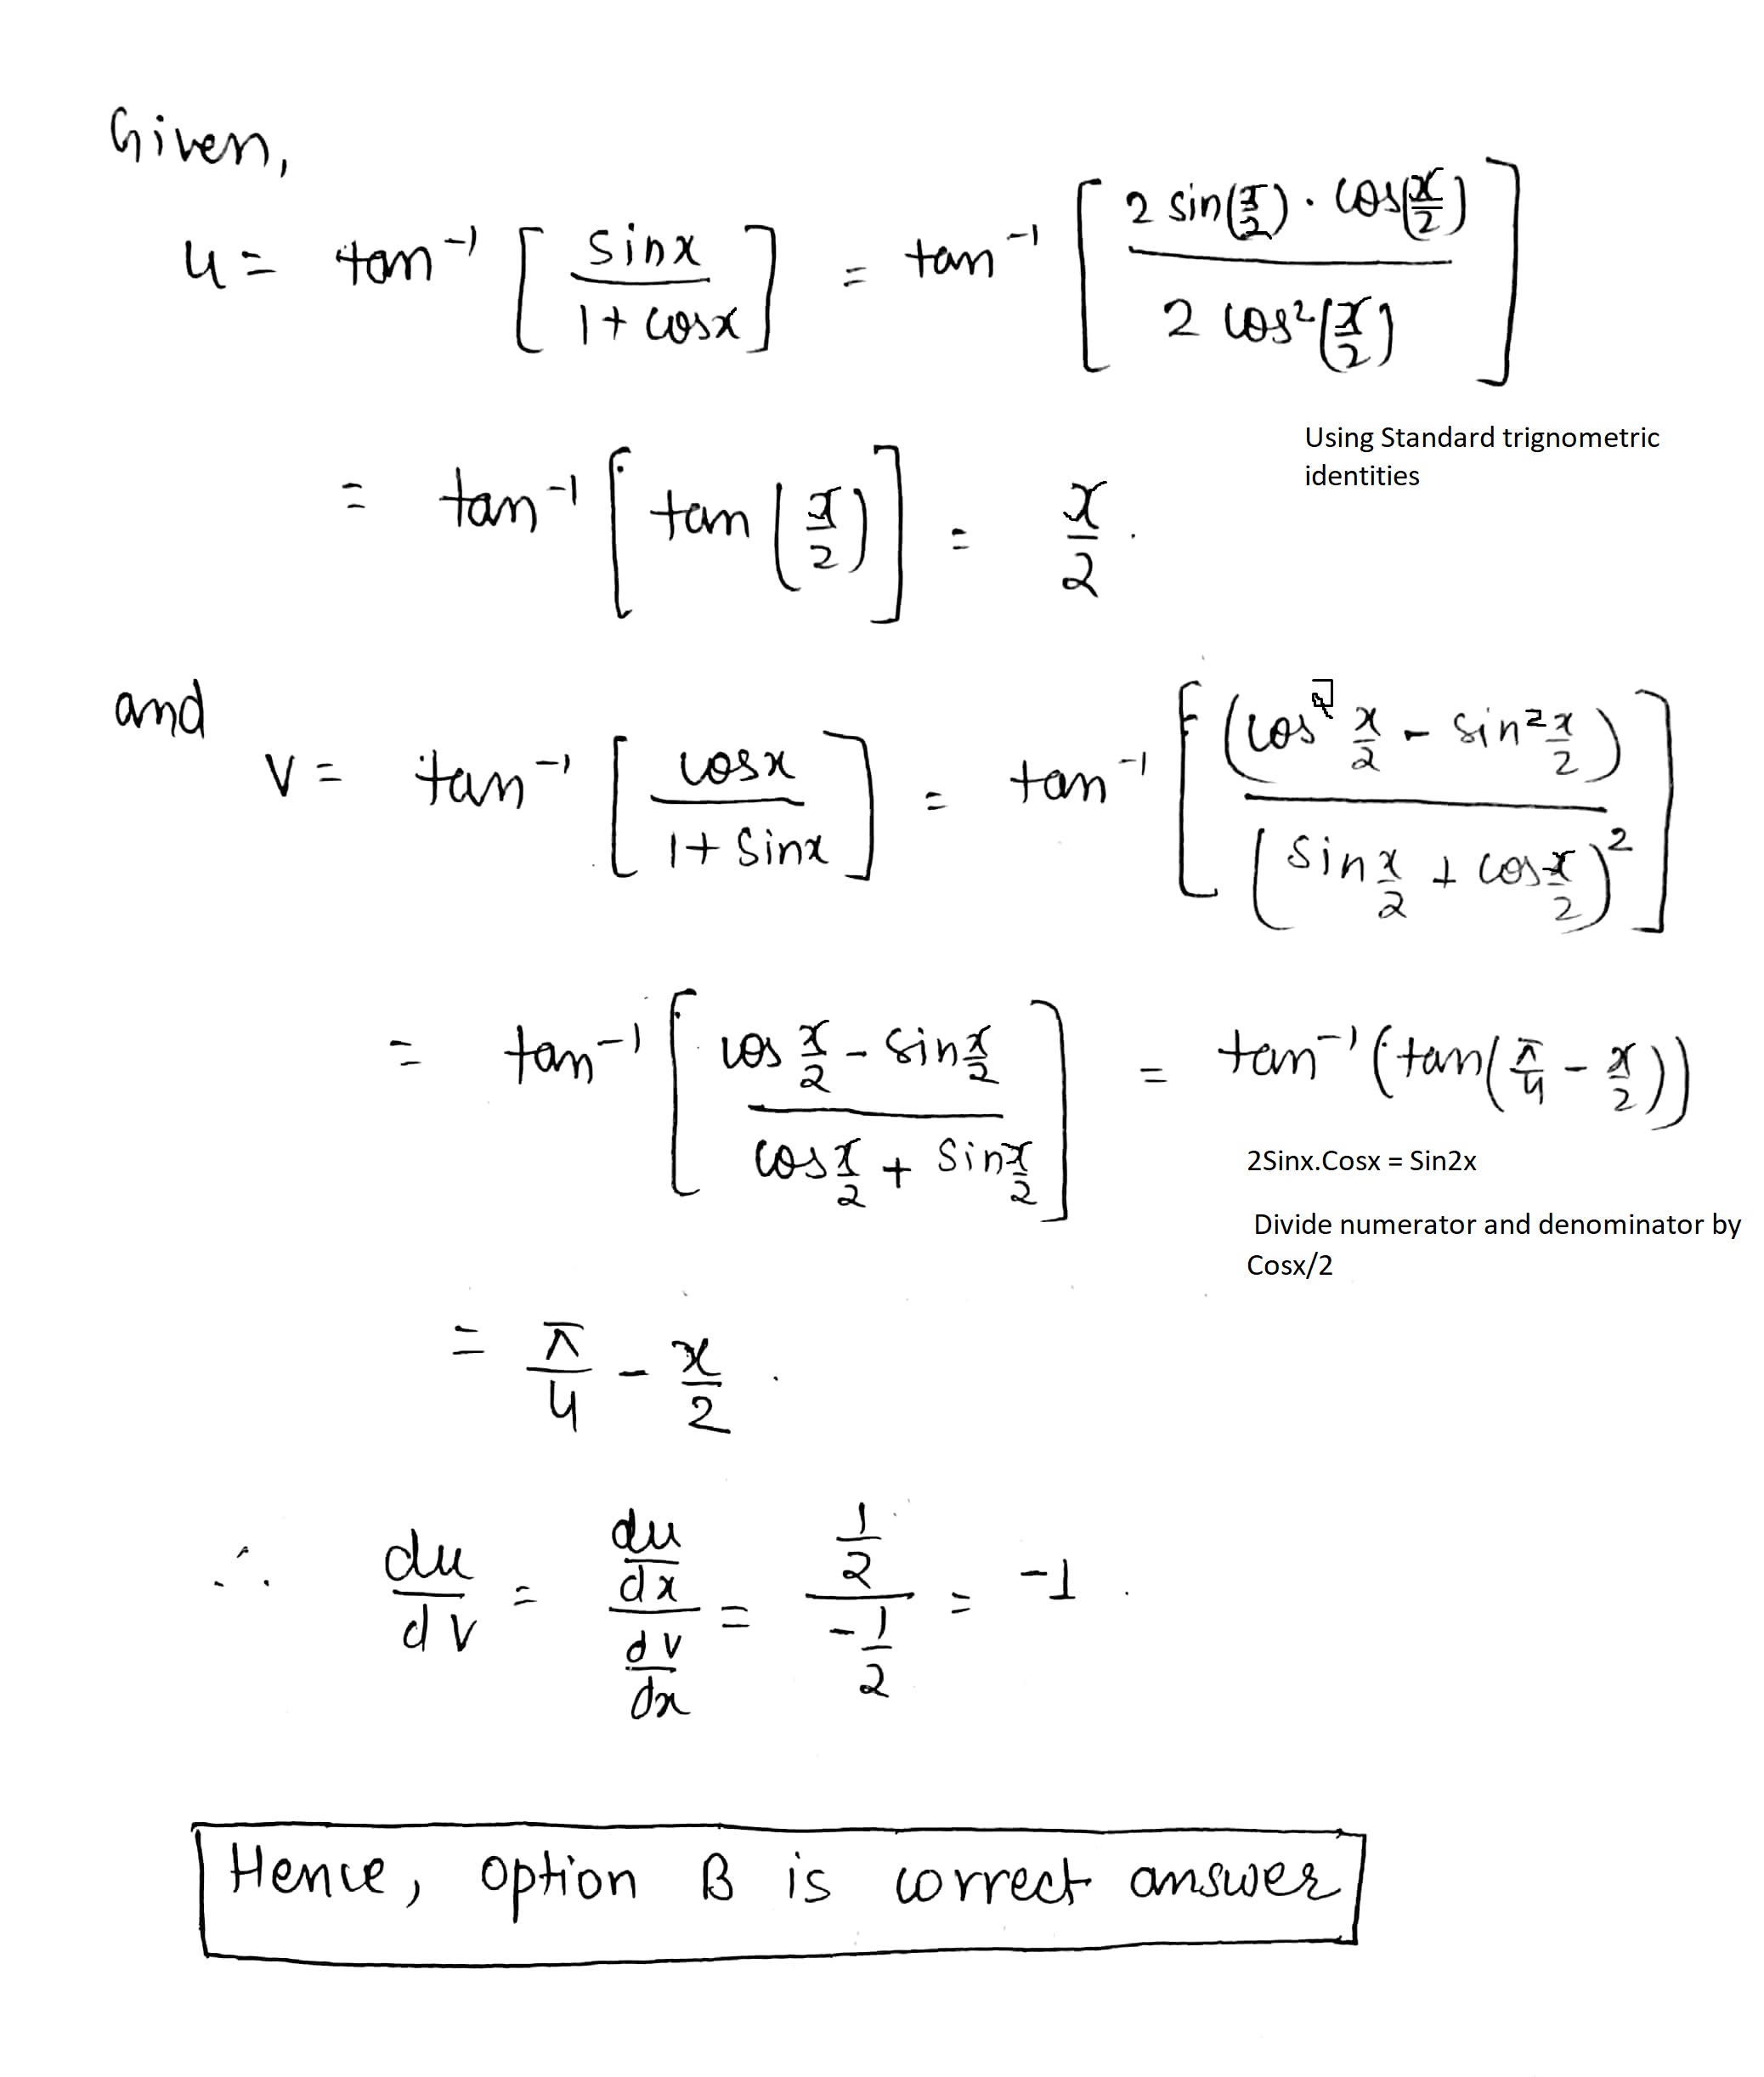 Given,
u = tan⁻¹ [ sinx / 1 + cosx ] = tan⁻¹ [ 2 sin(x/2) · cos(x/2) / 2 cos²(x/2) ]
Using Standard trignometric
identities
= tan⁻¹ [ tan (x/2) ] = x/2 .
and
v = tan⁻¹ [ cosx / 1 + sinx ] = tan⁻¹ [ (cos² x/2 - sin² x/2) / (sin x/2 + cos x/2)² ]
= tan⁻¹ [ cos x/2 - sin x/2 / cos x/2 + sin x/2 ] = tan⁻¹ (tan(π/4 - x/2))
2Sinx.Cosx = Sin2x
Divide numerator and denominator by
Cosx/2
= π/4 - x/2 .
∴ du/dv = du/dx / dv/dx = 1/2 / -1/2 = -1 .
Hence, option B is correct answer